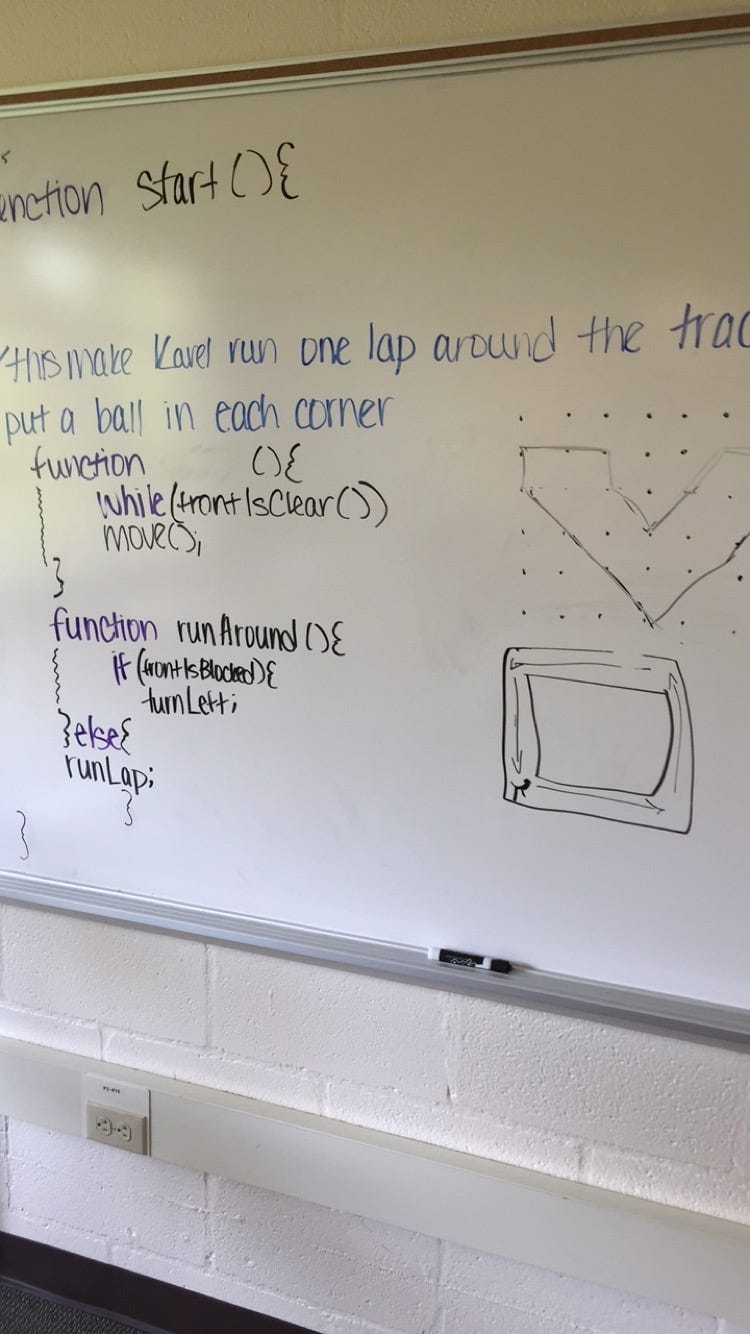 unction start(){
/this make Karel run one lap around the trac
put a ball in each corner
function (){
while(frontIsClear())
move();
}
function runAround(){
if (frontIsBlocked){
turnLeft;
}else{
runLap;
}
}